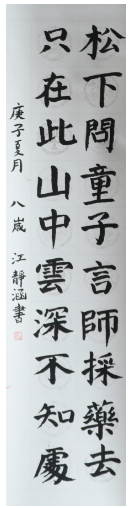 松下問童子言師採藥去
只在此山中雲深不知處
庚子夏月 八歲 江靜涵書